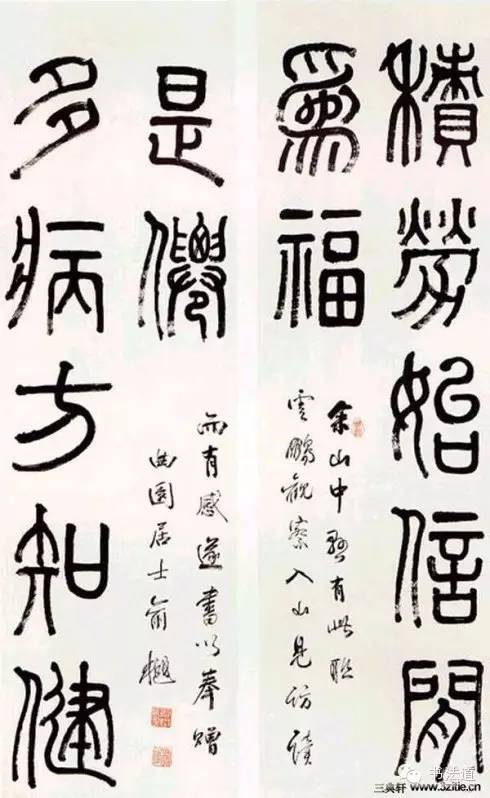 積勞始信閒
爲福
余山中懸有此聯
雲鵬觀察入山見訪讀
多病方知健
是僊
而有感遂書以奉贈
曲園居士俞樾
书法道
三典轩 www.3zitie.cn